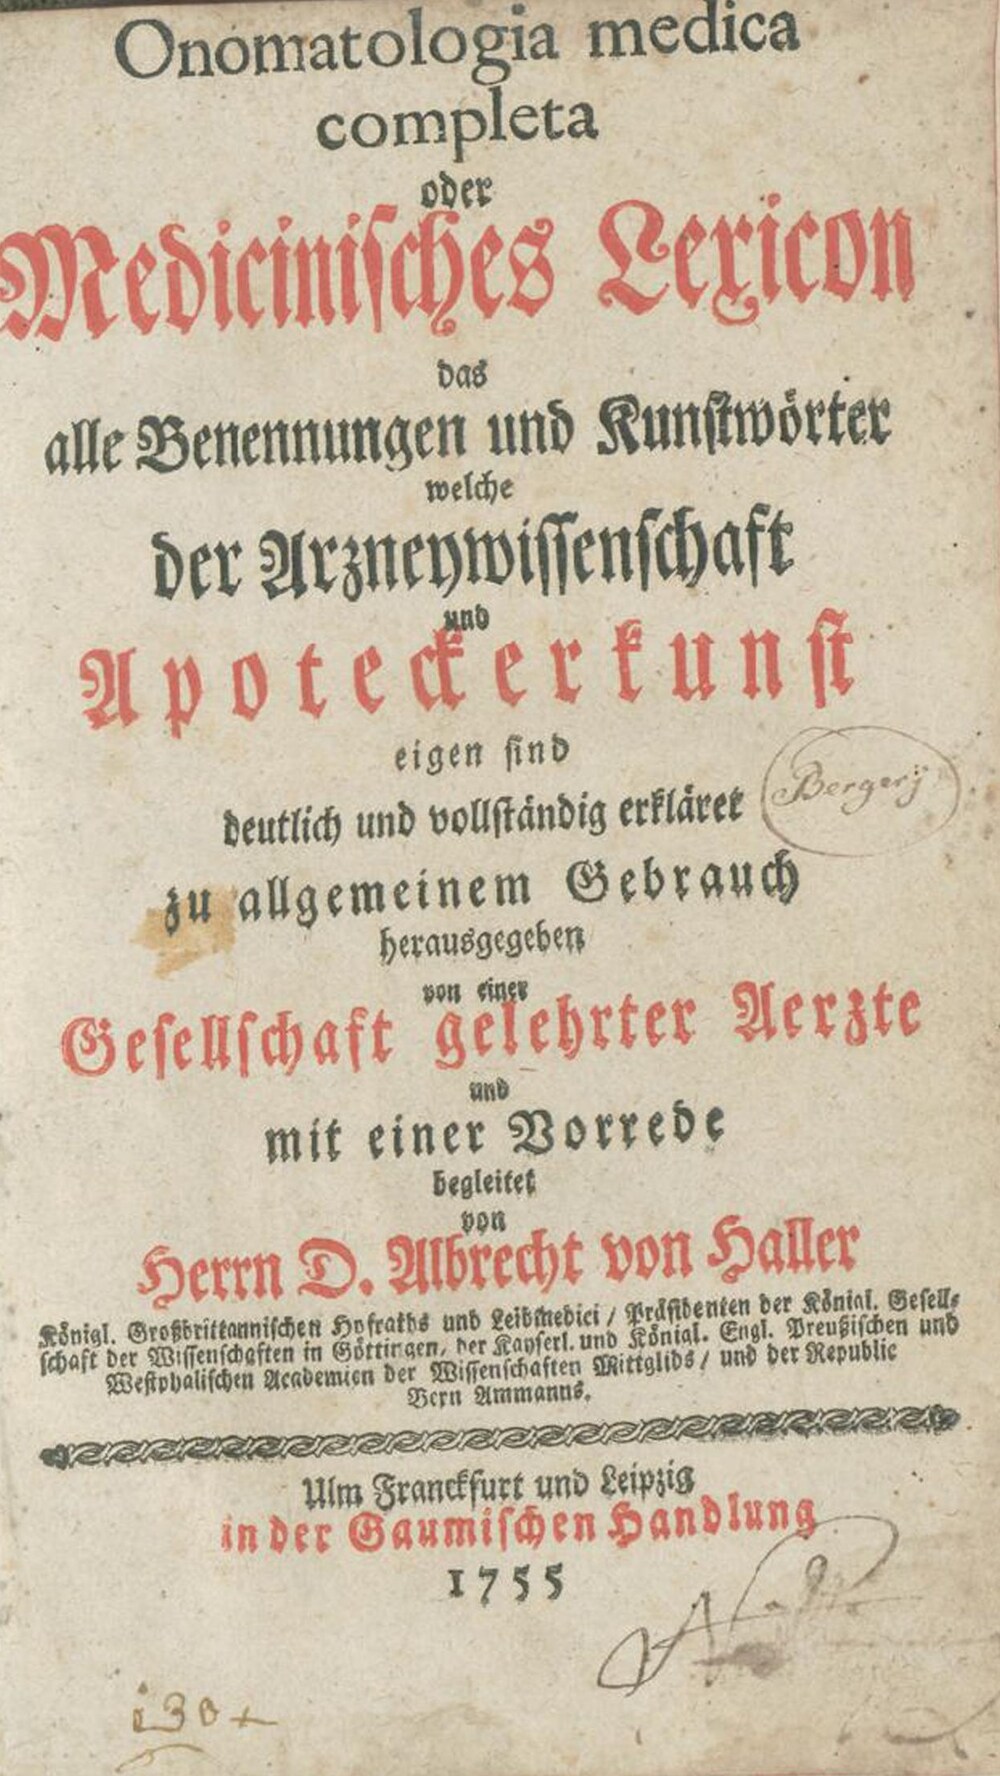 Onomatologia medica
completa
oder
Medicinisches Lexicon
das
alle Benennungen und Kunstwörter
welche
der Arzneywissenschaft
und
Apoteckerkunst
eigen sind
deutlich und vollständig erkläret
Bergerÿ
zu allgemeinem Gebrauch
herausgegeben
von einer
Gesellschaft gelehrter Aerzte
und
mit einer Vorrede
begleitet
von
Herrn D. Albrecht von Haller
Königl. Großbrittannischen Hofraths und Leibmedici / Präsidenten der Königl. Gesell-
schaft der Wissenschaften in Göttingen, der Kayserl. und Königl. Engl. Preußischen und
Westphalischen Academien der Wissenschaften Mittglids / und der Republic
Bern Ammanns.
Ulm Franckfurt und Leipzig
in der Gaumischen Handlung
1755